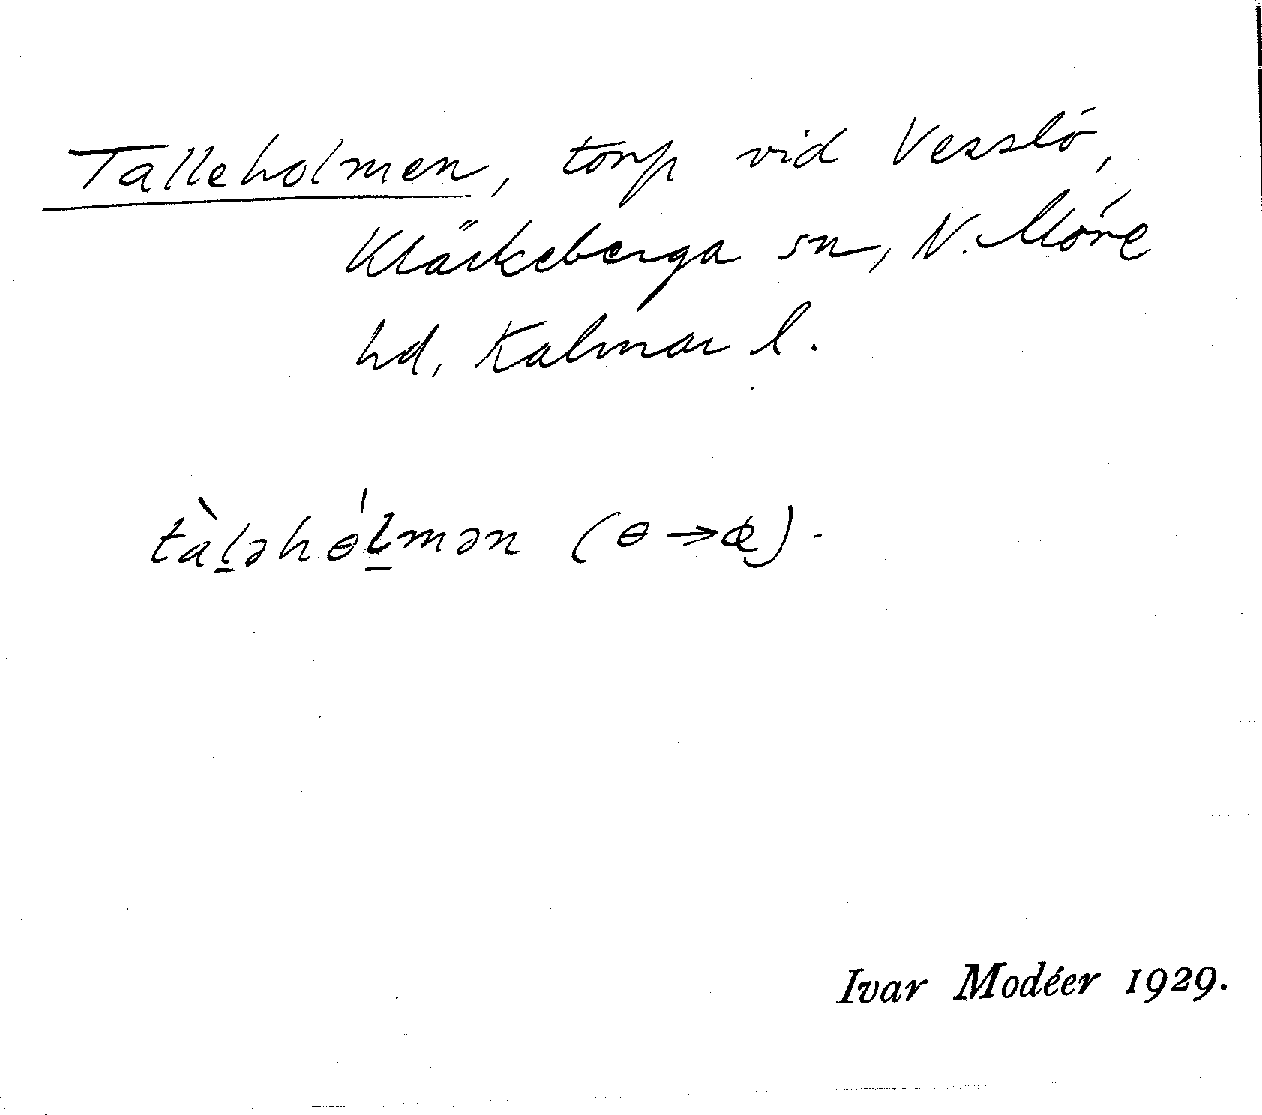 Talleholmen, torp vid Vesslö,
Kläckeberga sn, N. Möre
hd, Kalmar l.
tàl̠əhɵ́l̠mən (ɵ→ꭢ).
Ivar Modéer 1929.